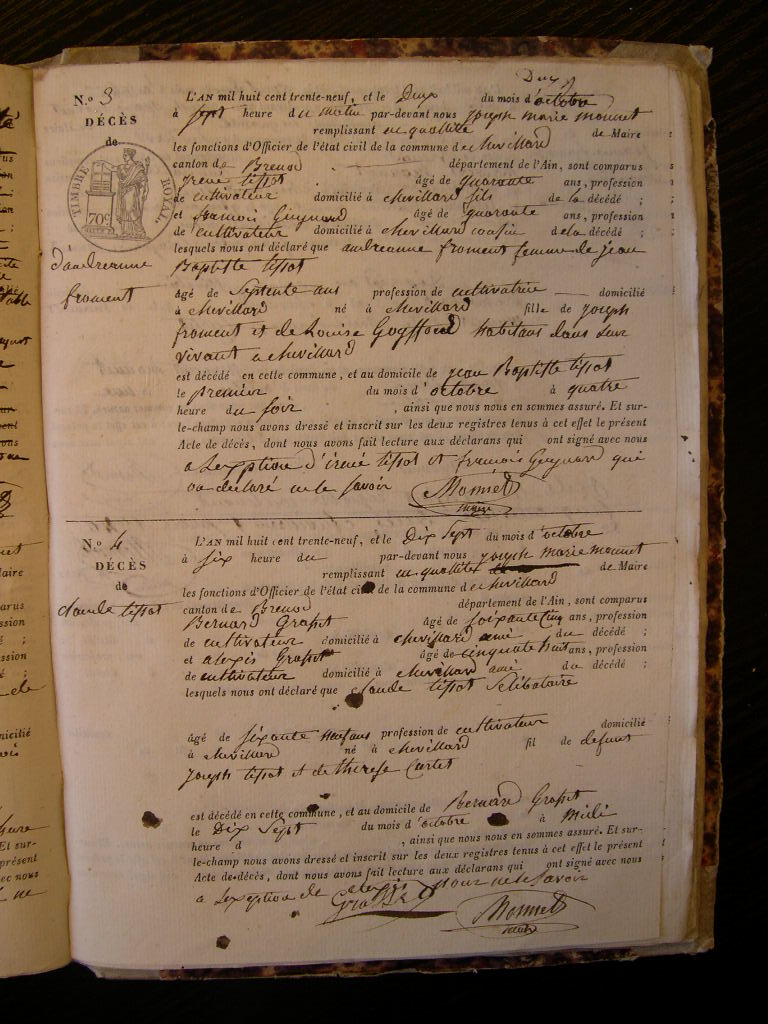 Duy
N.º 3
DÉCÈS
de
d'andreanne
froment
TIMBRE ROYAL
70 c
L'AN mil huit cent trente-neuf, et le Dux du mois d'octobre
à sept heure du matin par-devant nous joseph marie monnet
remplissant en quallité de Maire
les fonctions d'Officier de l'état civil de la commune de chevillard
canton de Brenod département de l'Ain, sont comparus
irené tissot âgé de quarante ans, profession
de cultivateur domicilié à chevillard fils de la décédé ;
et framcois Guynard âgé de quarante ans, profession
de cultivateur domicilié à chevillard cousin de la décédé ;
lesquels nous ont déclaré que andreanne froment femme de jean
Baptiste tissot
âgé de septente ans profession de cultivatrice domicilié
à chevillard né à chevillard fille de joseph
froment et de Louise habitans dans leur
vivant a chevillard
est décédé en cette commune, et au domicile de jean Baptiste tissot
le premier du mois d'octobre à quatre
heure du soir , ainsi que nous nous en sommes assuré. Et sur-
le-champ nous avons dressé et inscrit sur les deux registres tenus à cet effet le présent
Acte de décès, dont nous avons fait lecture aux déclarans qui ont signé avec nous
a lexption d'irené tissot et francois Guynard qui
on declaré ne le savoir
Monnet
maire
N.º 4
DÉCÈS
de
claude tissot
L'AN mil huit cent trente-neuf, et le Dix Sept du mois d'octobre
à six heure du par-devant nous joseph marie monnet
remplissant en quallité de Maire
les fonctions d'Officier de l'état civil de la commune de chevillard
canton de Brenod département de l'Ain, sont comparus
Bernard Grosset âgé de soixante cinq ans, profession
de cultivateur domicilié à chevillard amé du décédé ;
et alexis Grosset âgé de cinquate huit ans, profession
de cultivateur domicilié à chevillard amé du décédé ;
lesquels nous ont déclaré que claude tissot selibataire
âgé de sixante neuf ans profession de cultivateur domicilié
à chevillard né à chevillard fil de defunt
joseph tissot et de therese Cartet
est décédé en cette commune, et au domicile de Bernard Grosset
le Dix Sept du mois d'octobre à midi
heure d , ainsi que nous nous en sommes assuré. Et sur-
le-champ nous avons dressé et inscrit sur les deux registres tenus à cet effet le présent
Acte de décès, dont nous avons fait lecture aux déclarans qui ont signé avec nous
a lexption de alexis pour ne le savoir
Grosset
Monnet
maire